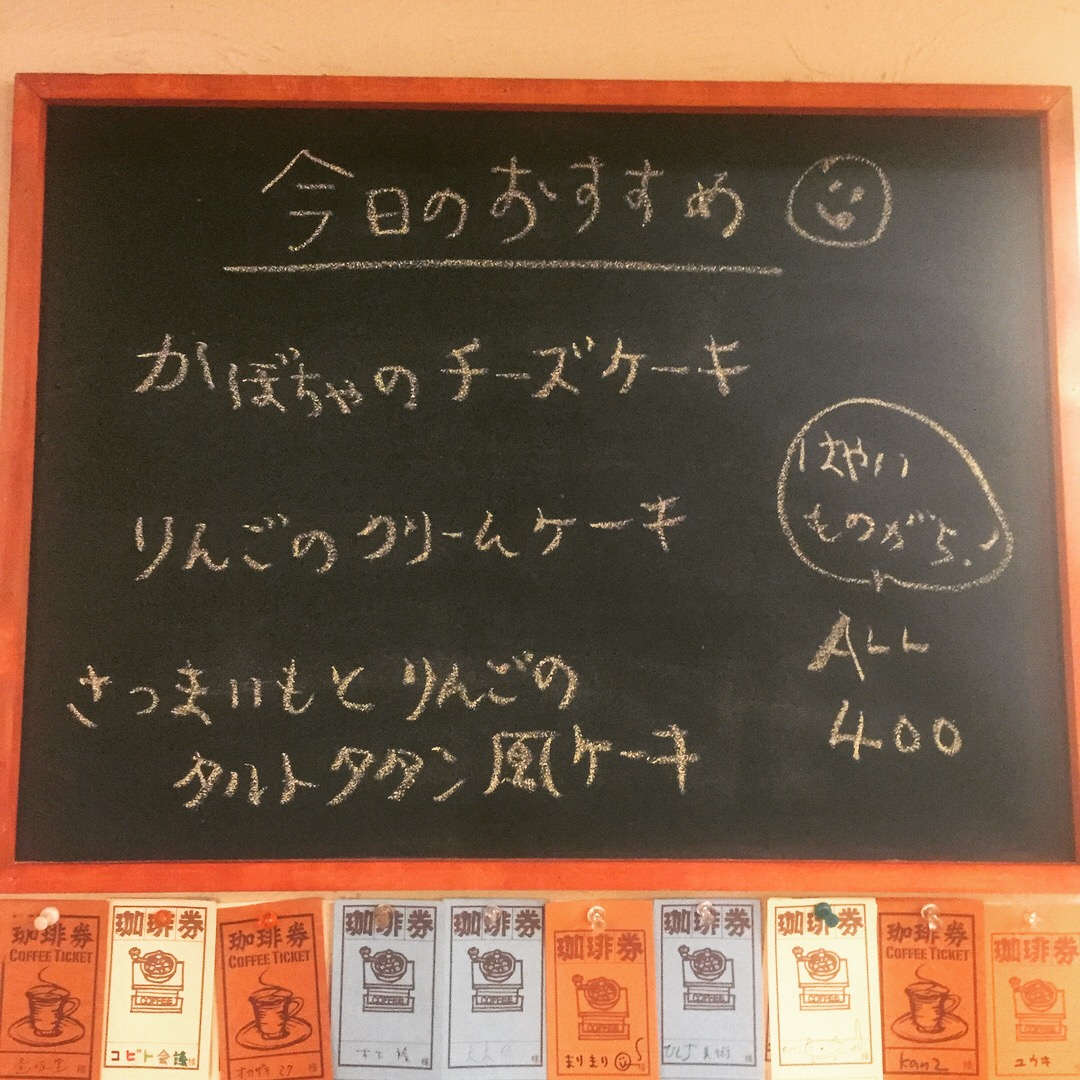 今日のおすすめ
かぼちゃのチーズケーキ
りんごのクリームケーキ
さつまいもとりんごの
タルトタタン風ケーキ
はやい
ものがち!
ALL
400
珈琲券
COFFEE TICKET
珈琲券
COFFEE
コビト会議様
珈琲券
COFFEE TICKET
オカザキ ミク
珈琲券
COFFEE
様
珈琲券
COFFEE
様
珈琲券
COFFEE
まりまり
珈琲券
COFFEE
様
珈琲券
COFFEE
様
珈琲券
COFFEE TICKET
kanz
珈琲券
COFFEE
ユウキ